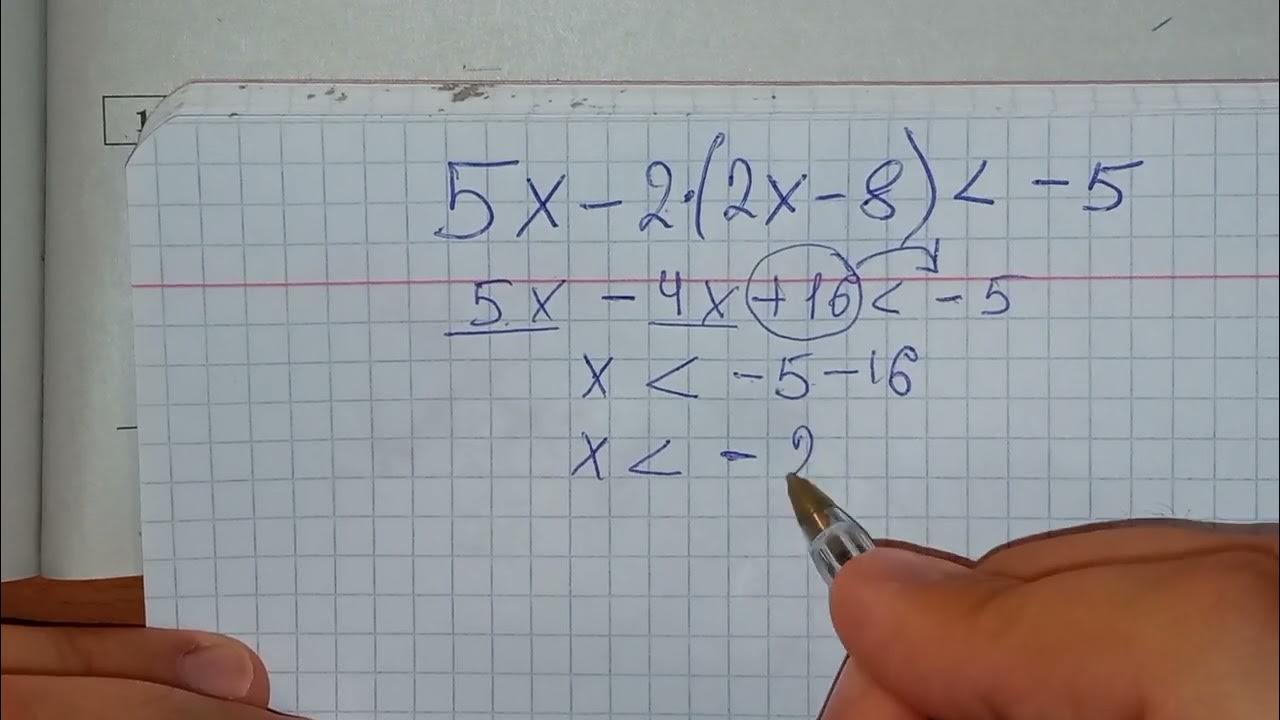 5x - 2·(2x - 8) < - 5
5x - 4x + 16 < - 5
x < - 5 - 16
x < - 2